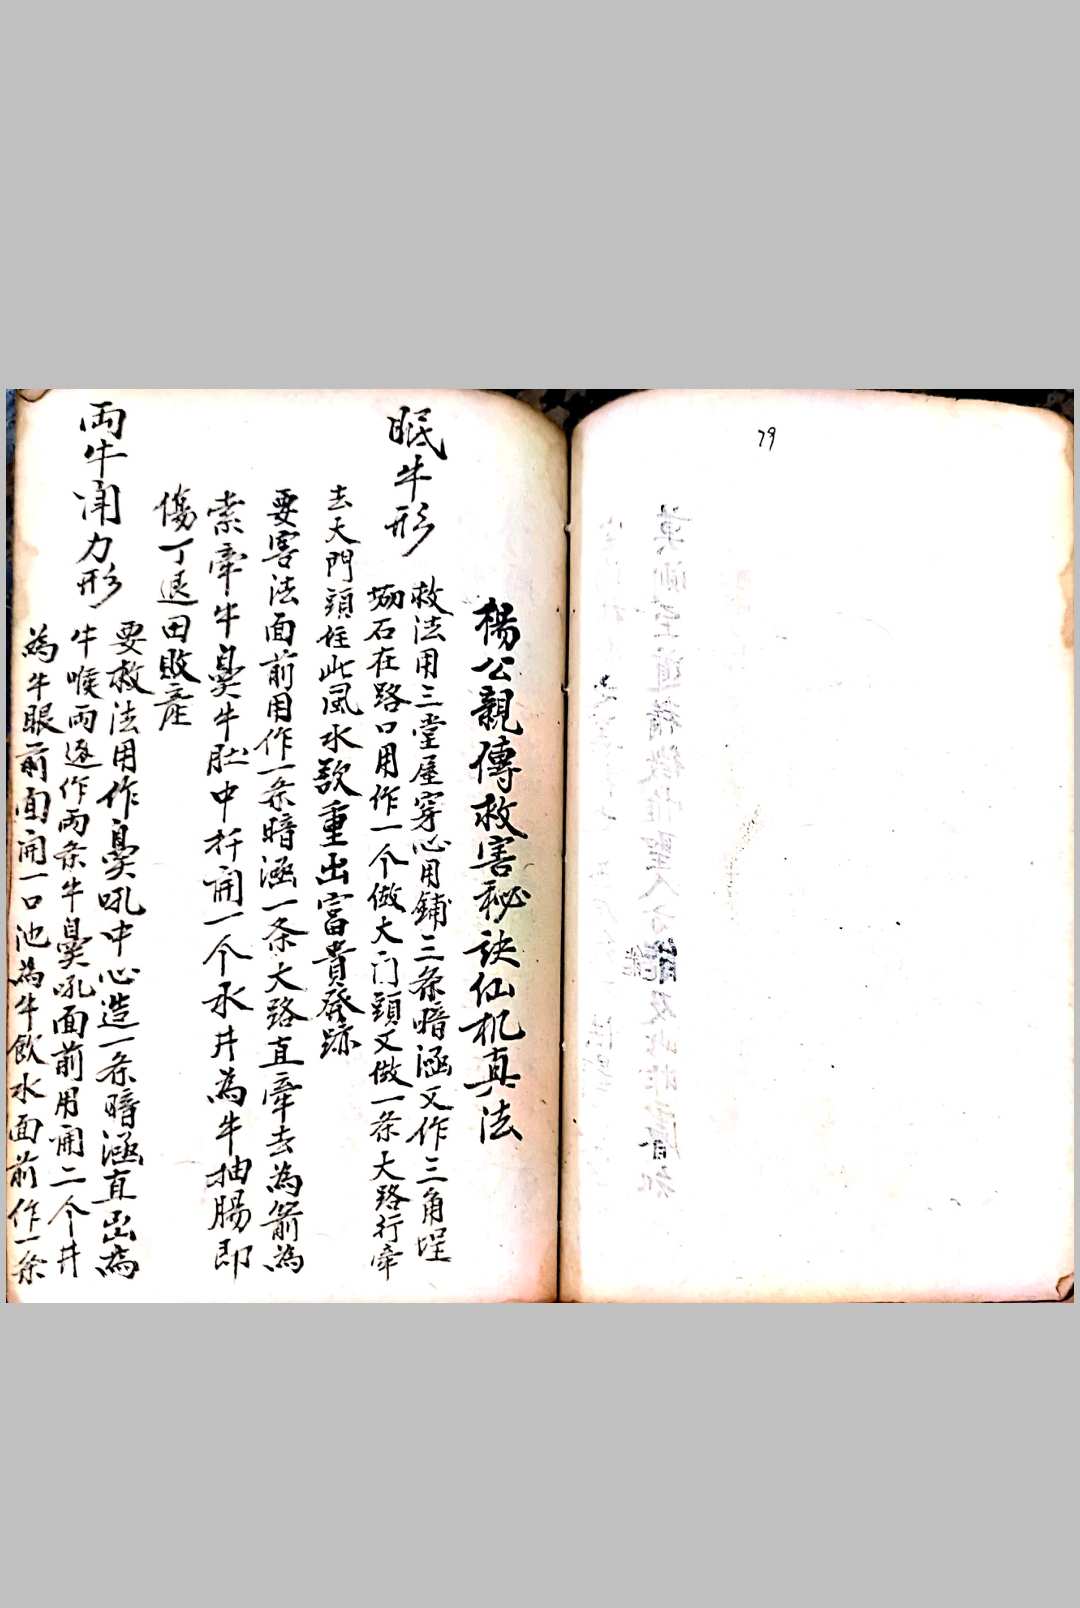 79
楊公親傳救害秘訣仙机真法
眠牛形
救法用三堂屋穿心用鋪三条暗涵又作三角埕
石在路口用作一个做大门頭又做一条大路行牵
去天門頭住此風水欵重出富貴發跡
要害法面前用作一条暗涵一条大路直牽去為箭為
索牽牛鼻牛肚中扦開一个水井為牛抽腸即
傷丁退田敗產
両牛鬥力形
要救法用作鼻吼中心造一条暗涵直出為
牛喉両邊作両条牛鼻吼面前用開二个井
為牛眼前面開一口池為牛飲水面前作一条